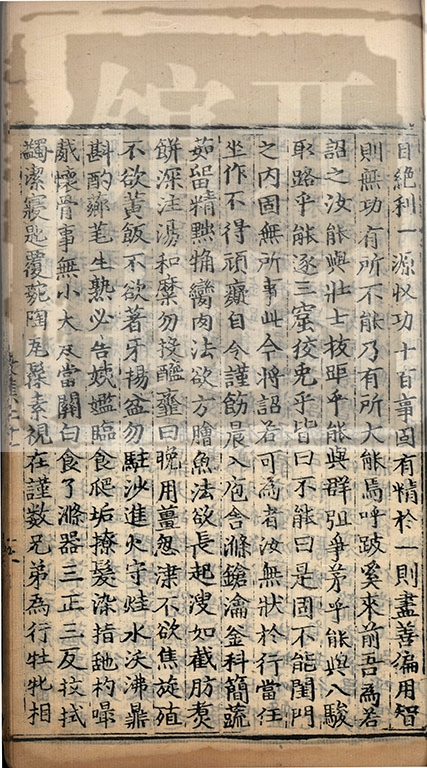 目絕利一源収功十百事固有精於一則盡善徧用智
則無功有所不能乃有所大能焉呼跛奚來前吾為若
詔之汝能與壯士拔距乎能與群狙爭茅乎能與八駿
取路乎能逐三窟狡兎乎皆曰不能曰是固不能閨門
之内固無所事此今將詔若可為者汝無狀於行當任
坐作不得頑癡自今謹飭晨入庖舎滌鎗瀹釜料簡蔬
茹留精黜觕臠肉法欲方膾魚法欲長起溲如截肪煑
餅深注湯和糜勿投醯虀曰晚用薑怱渫不欲焦旋殖
不欲黃飯不欲著牙揚盆勿駐沙進火守烓水沃沸鼎
斟酌薌芼生熟必告姨嫗臨食爬垢撩髮染指舐杓嘬
胾懷骨事無小大皆當關白食了滌器三正三反抆拭
蠲潔寢匙覆碗陶瓦髹素視在謹數兄弟為行牡牝相